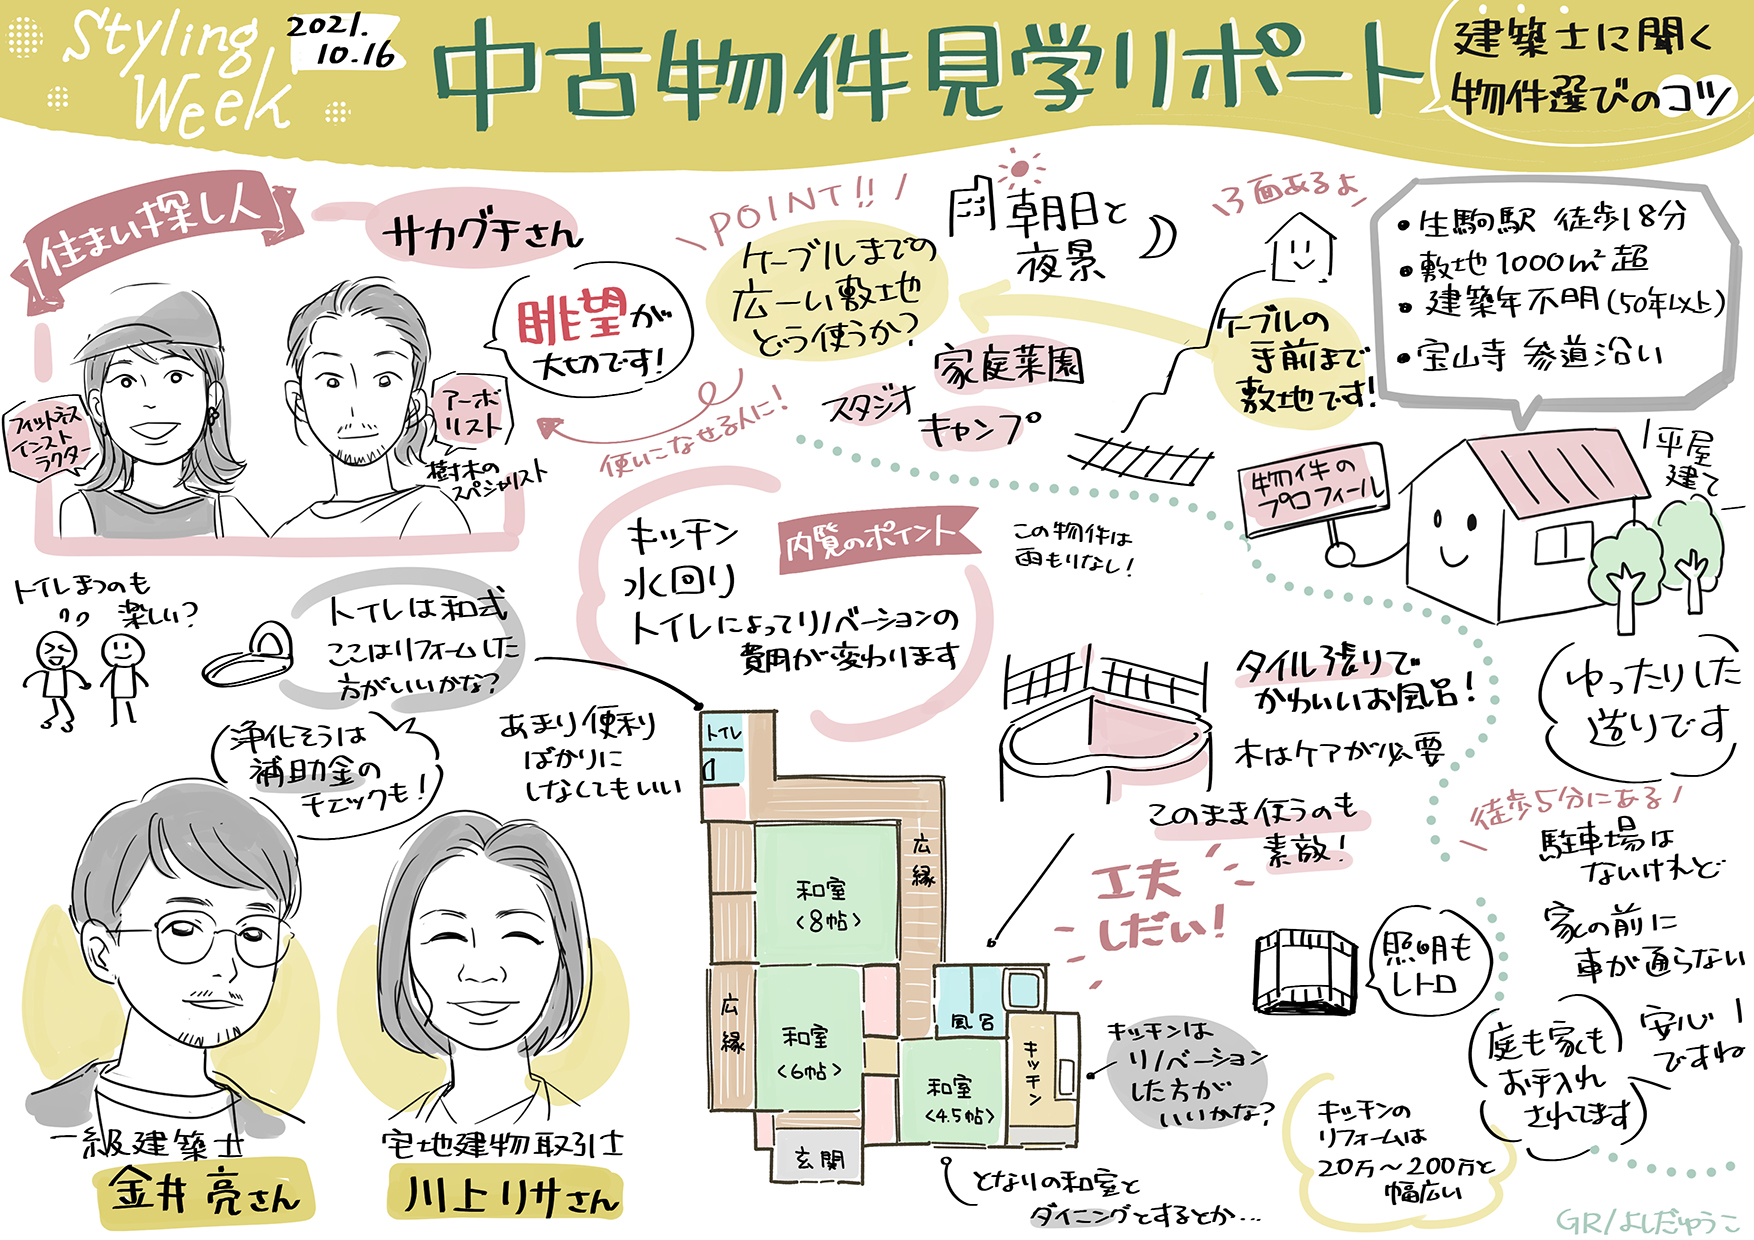 Styling
Week
2021.
10.16
中古物件見学リポート
建築士に聞く
物件選びのコツ
住まい探し人
サカグチさん
眺望が
大切です!
フィットネス
インスト
ラクター
アーボ
リスト
樹木の
スペシャリスト
POINT!!
ケーブルまでの
広ーい敷地
どう使うか?
使いこなせる人に!
朝日と
夜景
家庭菜園
スタジオ
キャンプ
3面あるよ
ケーブルの
手前まで
敷地です!
・生駒駅 徒歩18分
・敷地1000m²超
・建築年不明(50年以上)
・宝山寺 参道沿い
物件の
プロフィール
平屋
建て
ゆったりした
造りです
徒歩5分にある
駐車場は
ないけれど
家の前に
車が通らない
安心
ですね
庭も家も
お手入れ
されてます
内覧のポイント
キッチン
水回り
トイレによってリノベーションの
費用が変わります
この物件は
雨もりなし!
トイレまつのも
楽しい?
トイレは和式
ここはリフォームした
方がいいかな?
浄化そうは
補助金の
チェックも!
あまり便利
ばかりに
しなくてもいい
一級建築士
金井 亮さん
宅地建物取引士
川上リサさん
トイレ
広縁
和室
<8帖>
広縁
和室
<6帖>
風呂
キッチン
和室
<4.5帖>
玄関
タイル張りで
かわいいお風呂!
木はケアが必要
このまま使うのも
素敵!
工夫
しだい!
照明も
レトロ
キッチンは
リノベーション
した方が
いいかな?
となりの和室と
ダイニングとするとか…
キッチンの
リフォームは
20万~200万と
幅広い
GR/よしだゆうこ